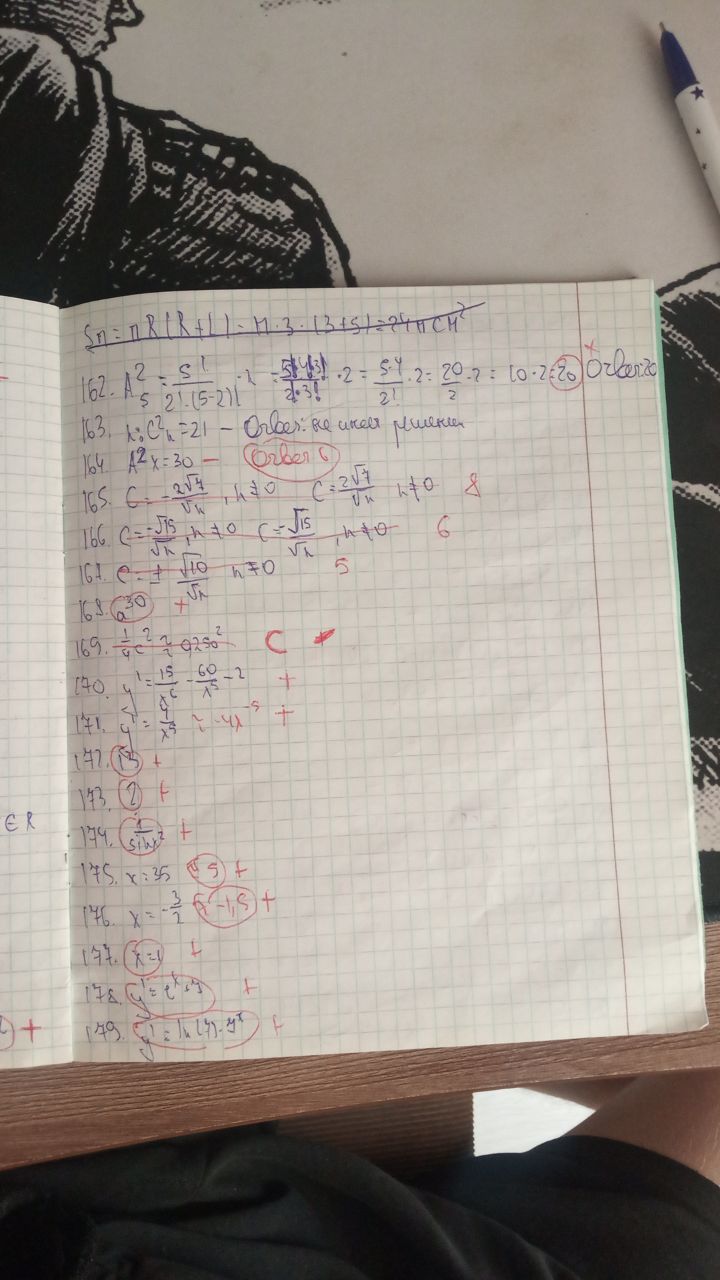 Sп = πR(R+L) = π·3·(3+5) = 24π см²
162. A₅² = 5!/(2!·(5-2)!) · 2 = 5!4!3!/(2!·3!) · 2 = 5·4/2! · 2 = 20/2 · 2 = 10·2 = 20 Ответ 20 +
163. n: C²n = 21 – Ответ: не имеет решении
164. A²x = 30 – Ответ 6
165. C = -2√7/√n, n≠0 C = 2√7/√n n≠0 8
166. C = -√15/√n, n≠0 C = √15/√n, n≠0 6
167. C = ± √10/√n n≠0 5
168. a³⁰ +
169. C
170. y' = 15/x⁶ - 60/x⁵ - 2 +
171. = -4x⁻⁵ +
172. 13 +
∈ R 173. 2 +
174. +
175. x = 35 +
176. x = -3/2 = -1,5 +
177. x=1 +
178. +
+ 179. y' = ln(7)·7ˣ +